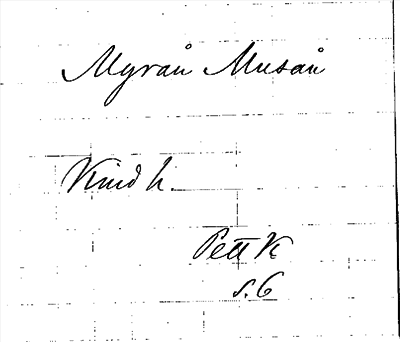 Myrån Musån
Kind h.
Pett K
s. 6